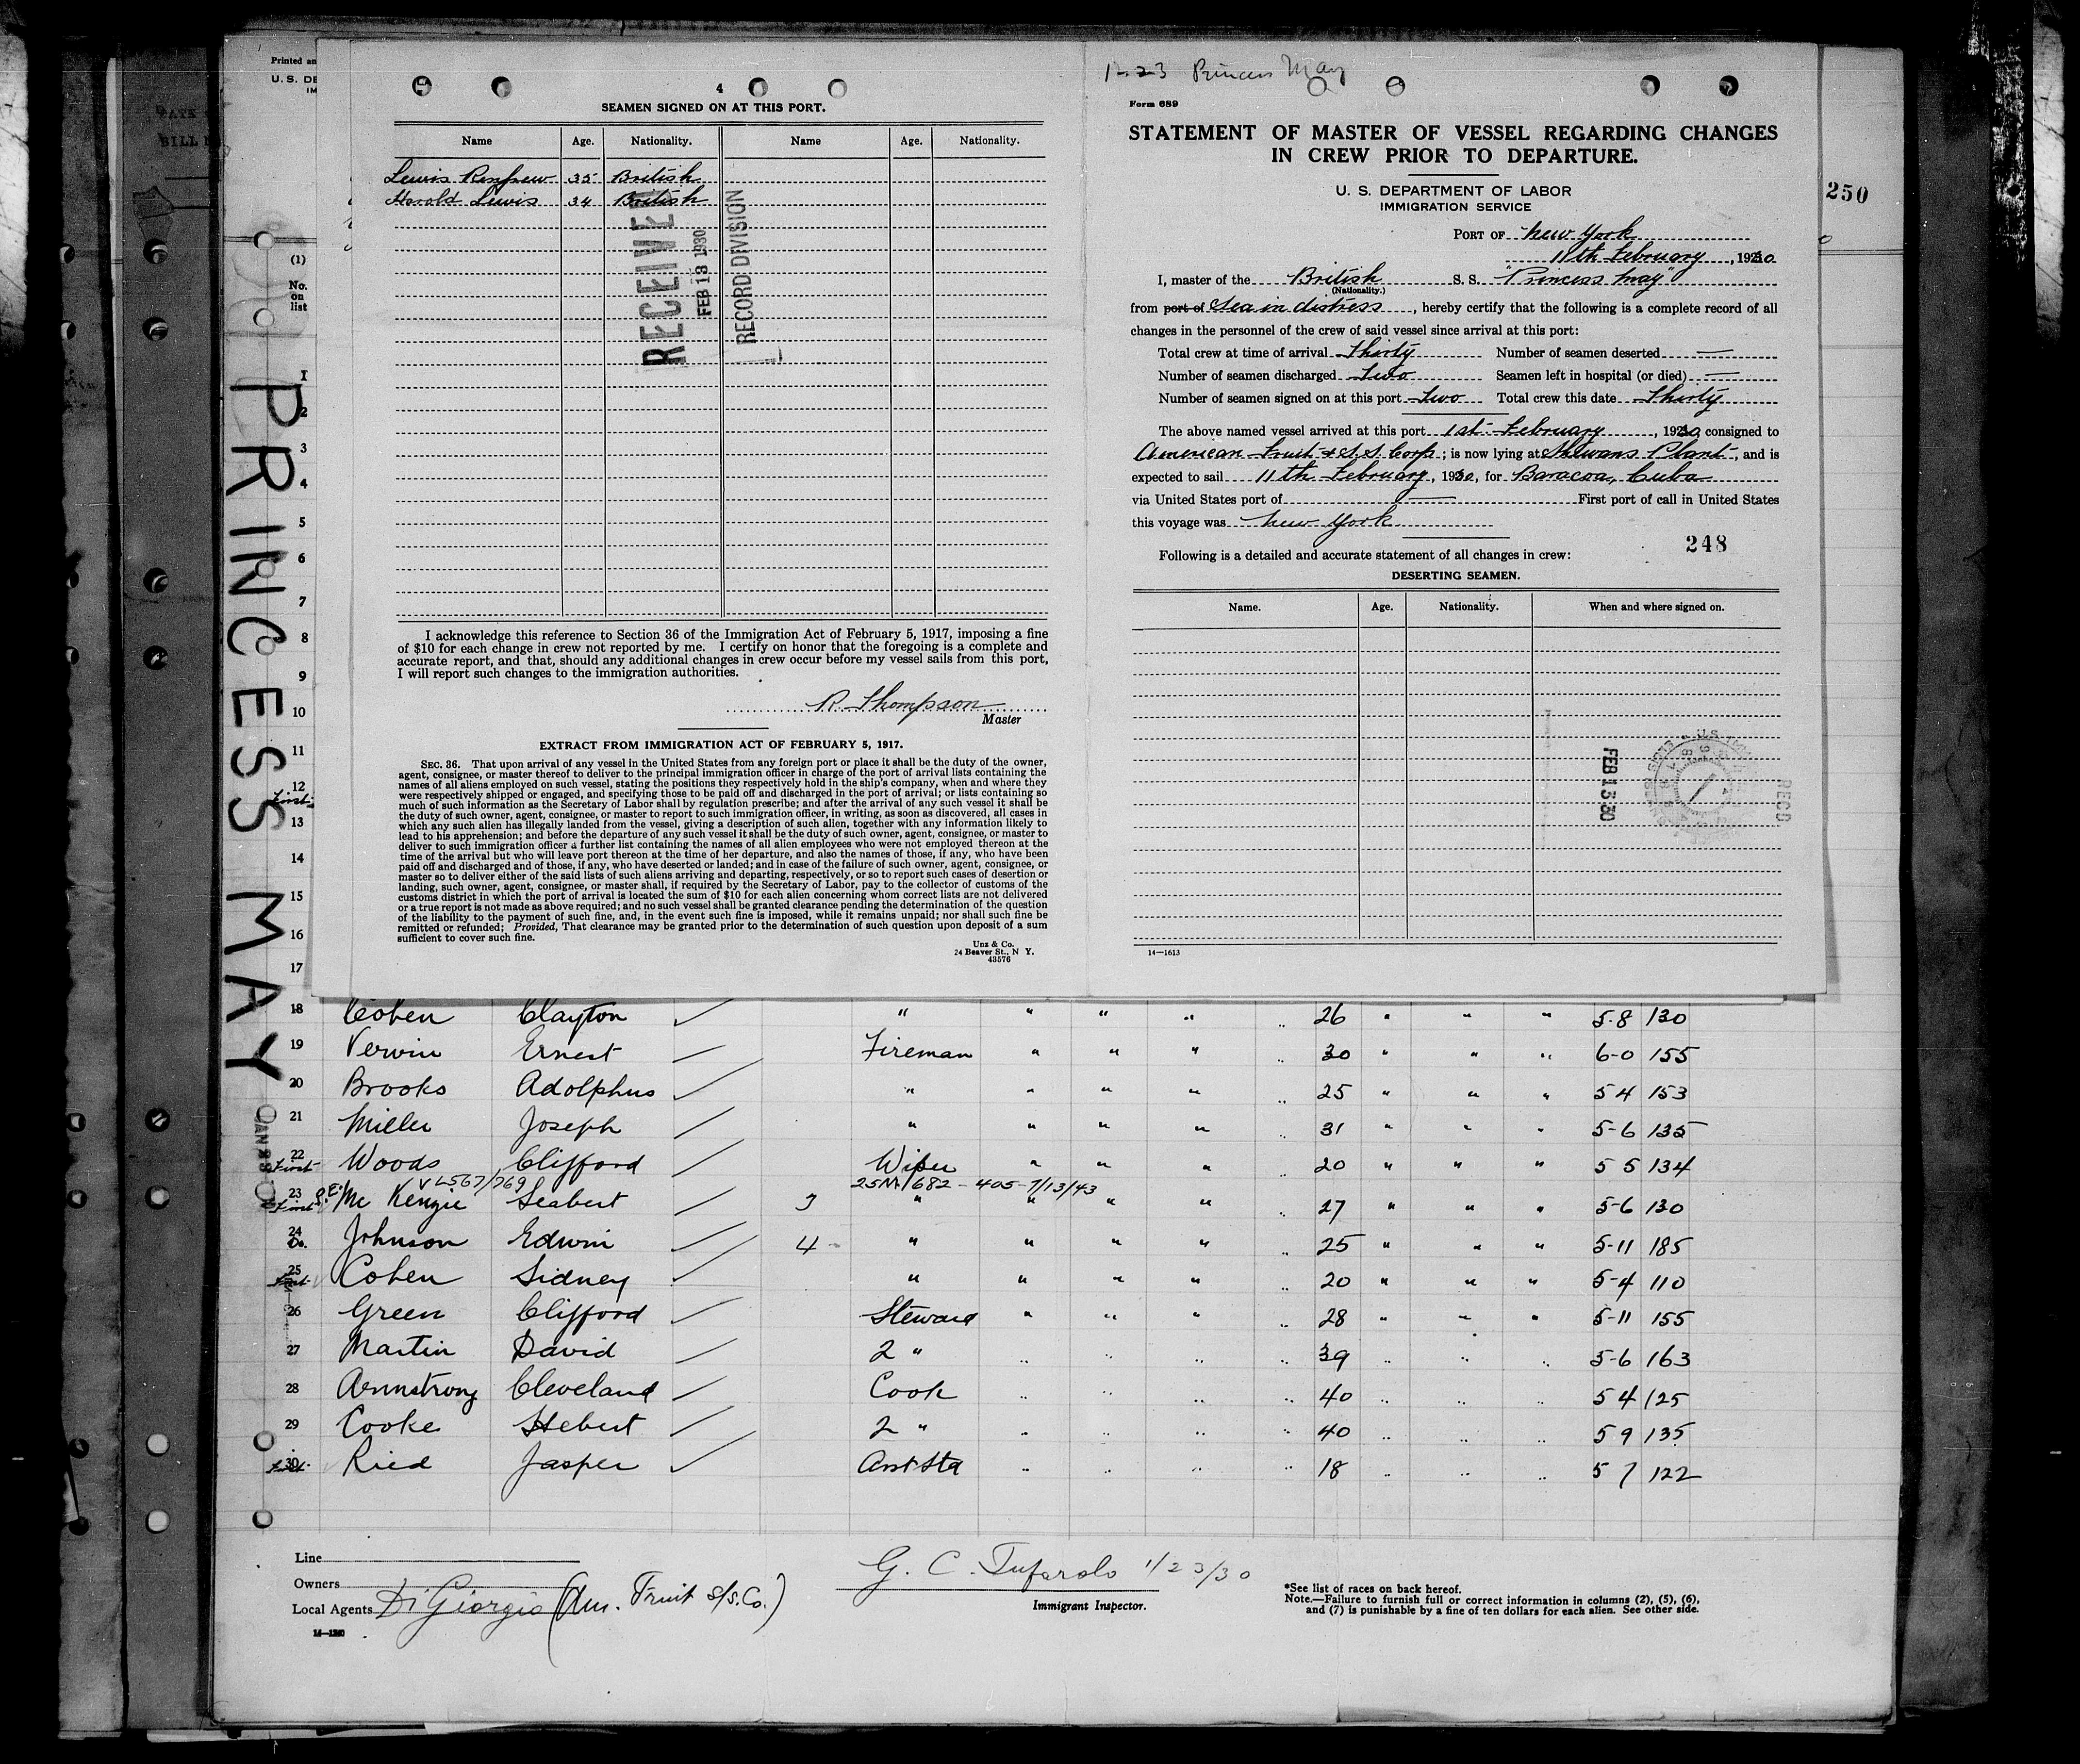 Printed an
U. S. DE
IM
(1)
No.
on
list
PRINCESS MAY
4
SEAMEN SIGNED ON AT THIS PORT.
Name Age. Nationality. Name Age. Nationality.
Lewis Renfrew 35 British
Harold Lewis 34 British
RECEIVE
FEB 13 1930
RECORD DIVISION
I acknowledge this reference to Section 36 of the Immigration Act of February 5, 1917, imposing a fine
of $10 for each change in crew not reported by me. I certify on honor that the foregoing is a complete and
accurate report, and that, should any additional changes in crew occur before my vessel sails from this port,
I will report such changes to the immigration authorities.
R. Thompson
Master
EXTRACT FROM IMMIGRATION ACT OF FEBRUARY 5, 1917.
SEC. 36. That upon arrival of any vessel in the United States from any foreign port or place it shall be the duty of the owner,
agent, consignee, or master thereof to deliver to the principal immigration officer in charge of the port of arrival lists containing the
names of all aliens employed on such vessel, stating the positions they respectively hold in the ship's company, when and where they
were respectively shipped or engaged, and specifying those to be paid off and discharged in the port of arrival; or lists containing so
much of such information as the Secretary of Labor shall by regulation prescribe; and after the arrival of any such vessel it shall be
the duty of such owner, agent, consignee, or master to report to such immigration officer, in writing, as soon as discovered, all cases in
which any such alien has illegally landed from the vessel, giving a description of such alien, together with any information likely to
lead to his apprehension; and before the departure of any such vessel it shall be the duty of such owner, agent, consignee, or master to
deliver to such immigration officer a further list containing the names of all alien employees who were not employed thereon at the
time of the arrival but who will leave port thereon at the time of her departure, and also the names of those, if any, who have been
paid off and discharged and of those, if any, who have deserted or landed; and in case of the failure of such owner, agent, consignee, or
master so to deliver either of the said lists of such aliens arriving and departing, respectively, or so to report such cases of desertion or
landing, such owner, agent, consignee, or master shall, if required by the Secretary of Labor, pay to the collector of customs of the
customs district in which the port of arrival is located the sum of $10 for each alien concerning whom correct lists are not delivered
or a true report is not made as above required; and no such vessel shall be granted clearance pending the determination of the question
of the liability to the payment of such fine, and, in the event such fine is imposed, while it remains unpaid; nor shall such fine be
remitted or refunded; Provided, That clearance may be granted prior to the determination of such question upon deposit of a sum
sufficient to cover such fine.
Unz & Co.
24 Beaver St., N Y.
43576
1-23 Princess May
Form 689
STATEMENT OF MASTER OF VESSEL REGARDING CHANGES
IN CREW PRIOR TO DEPARTURE.
U. S. DEPARTMENT OF LABOR
IMMIGRATION SERVICE
250
PORT OF New York
11th February, 1930
I, master of the British S. S. "Princess May"
(Nationality.)
from port of Sea in distress, hereby certify that the following is a complete record of all
changes in the personnel of the crew of said vessel since arrival at this port:
Total crew at time of arrival Thirty Number of seamen deserted —
Number of seamen discharged Two Seamen left in hospital (or died) —
Number of seamen signed on at this port Two Total crew this date Thirty
The above named vessel arrived at this port 1st February, 1930 consigned to
American Fruit & S.S. Corp; is now lying at Shewans Plant, and is
expected to sail 11th February, 1930, for Baracoa, Cuba
via United States port of — First port of call in United States
this voyage was New York
Following is a detailed and accurate statement of all changes in crew:
248
DESERTING SEAMEN.
Name. Age. Nationality. When and where signed on.
FEB 13 30
REC'D
14—1613
1
2
3
4
5
6
7
8
9
10
11
12
First
13
14
15
16
17
18 Cohen Clayton " " " " " 26 " " " 5-8 130
19 Verwin Ernest Fireman " " " " 30 " " " 6-0 155
20 Brooks Adolphus " " " " " 25 " " " 5 4 153
21 Miller Joseph " " " " " 31 " " " 5-6 135
22 First Woods Clifford Wiper " " " " 20 " " " 5 5 134
V L567/769 25M/682-405-7/13/43
23 First Mc Kenzie Seabert 3 " " " " " 27 " " " 5-6 130
24 Do. Johnson Edwin 4 " " " " " 25 " " " 5-11 185
25 First Cohen Sidney " " " " " 20 " " " 5-4 110
26 Green Clifford Steward " " " " 28 " " " 5-11 155
27 Martin David 2 " " " " " 39 " " " 5-6 163
28 Armstrong Cleveland Cook " " " " 40 " " " 5 4 125
29 Cooke Hebert 2 " " " " " 40 " " " 5 9 135
30 First Ried Jasper Asst Std " " " " 18 " " " 5 7 122
Line
Owners
Local Agents Di Giorgio (Am. Fruit S/S. Co.)
G. C. Tufarolo 1/23/30
Immigrant Inspector.
*See list of races on back hereof.
Note.—Failure to furnish full or correct information in columns (2), (5), (6),
and (7) is punishable by a fine of ten dollars for each alien. See other side.